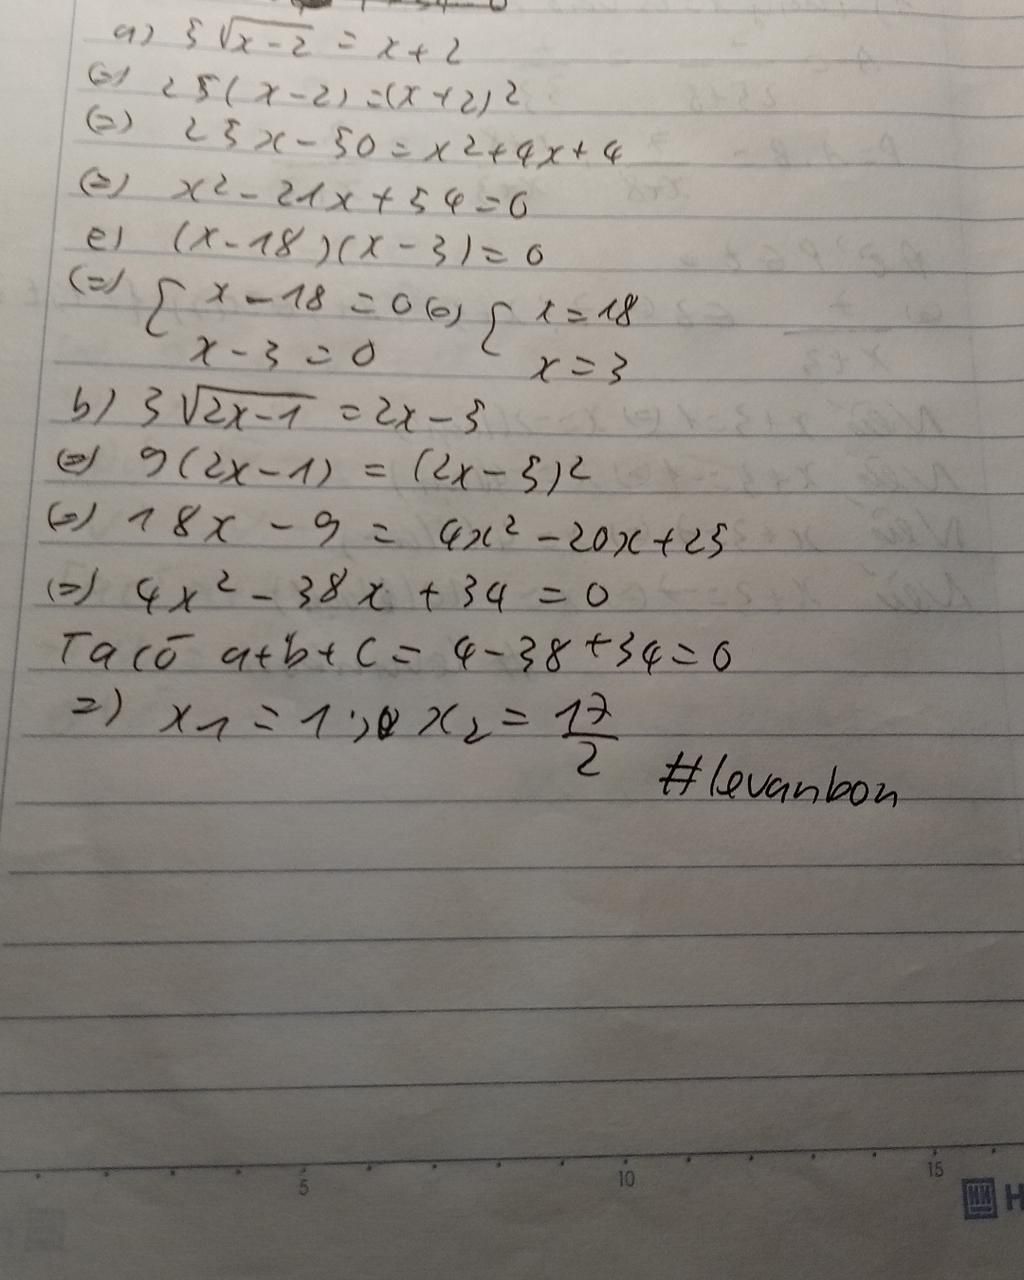 a) 5√x-2 = x+2
(=) 25(x-2)=(x+2)2
(=) 25x-50=x2+4x+4
(=) x2-21x+54=0
(=) (x-18)(x-3)=0
(=) { x-18=0 (=) { x=18
x-3=0 x=3
b) 3√2x-1 = 2x-5
(=) 9(2x-1) = (2x-5)2
(=) 18x - 9 = 4x2 - 20x+25
(=) 4x2 - 38x + 34 = 0
Ta có a+b+c = 4-38+34=0
=) x1 = 1 ; x2 = 17/2
#levanbon
5 10 15
H